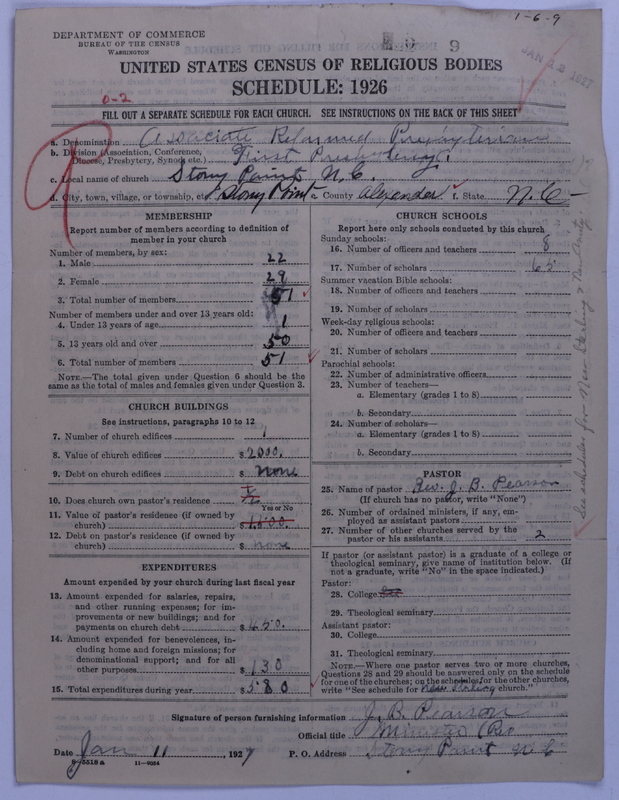 1-6-9
DEPARTMENT OF COMMERCE
BUREAU OF THE CENSUS
WASHINGTON
9
JAN 12 1927
UNITED STATES CENSUS OF RELIGIOUS BODIES
SCHEDULE: 1926
0-2
FILL OUT A SEPARATE SCHEDULE FOR EACH CHURCH. SEE INSTRUCTIONS ON THE BACK OF THIS SHEET
a. Denomination Associate Reformed Presbyterian
b. Division (Association, Conference, Diocese, Presbytery, Synod, etc.) First Presbytery.
c. Local name of church Stony Point N.C.
d. City, town, village, or township, etc. Stony Point e. County Alexander f. State N.C-
MEMBERSHIP
Report number of members according to definition of
member in your church
Number of members, by sex:
1. Male 22
2. Female 29
3. Total number of members 51
Number of members under and over 13 years old:
4. Under 13 years of age 1
5. 13 years old and over 50
6. Total number of members 51
NOTE.—The total given under Question 6 should be
same as the total of males and females given under Question 3.
CHURCH BUILDINGS
See instructions, paragraphs 10 to 12
7. Number of church edifices 1
8. Value of church edifices $2000.
9. Debt on church edifices $ none
10. Does church own pastor's residence
Yes or No
11. Value of pastor's residence (if owned by
church) $1500.
12. Debt on pastor's residence (if owned by
church) $ none
EXPENDITURES
Amount expended by your church during last fiscal year
13. Amount expended for salaries, repairs,
and other running expenses; for im-
provements or new buildings; and for
payments on church debt $450.
14. Amount expended for benevolences, in-
cluding home and foreign missions; for
denominational support; and for all
other purposes $130
15. Total expenditures during year $580
CHURCH SCHOOLS
Report here only schools conducted by this church
Sunday schools:
16. Number of officers and teachers 8
17. Number of scholars 65
Summer vacation Bible schools:
18. Number of officers and teachers
19. Number of scholars
Week-day religious schools:
20. Number of officers and teachers
21. Number of scholars
Parochial schools:
22. Number of administrative officers
23. Number of teachers—
a. Elementary (grades 1 to 8)
b. Secondary
24. Number of scholars—
a. Elementary (grades 1 to 8)
b. Secondary
PASTOR
25. Name of pastor Rev. J. B. Pearson
(If church has no pastor, write "None")
26. Number of ordained ministers, if any, em-
ployed as assistant pastors
27. Number of other churches served by the
pastor or his assistants 2
If pastor (or assistant pastor) is a graduate of a college or
theological seminary, give name of institution below. (If
not a graduate, write "No" in the space indicated.)
Pastor:
28. College
29. Theological seminary
Assistant pastor:
30. College
31. Theological seminary
NOTE.—Where one pastor serves two or more churches,
Questions 28 and 29 should be answered only on the schedule
for one of the churches; on the schedules for the other churches,
write "See schedule for New Sterling church."
See schedule for New Sterling
Signature of person furnishing information J. B. Pearson
Official title Minister
Date Jan 11, 1927 P. O. Address Stony Point N C
8-5518 a 11-9024